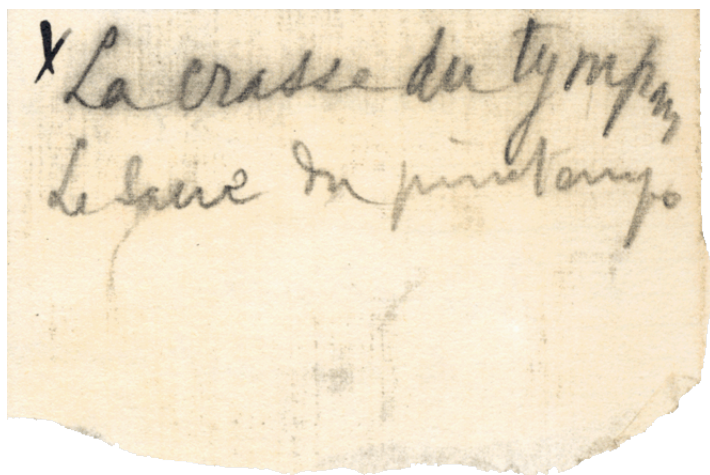 X La crasse du tympan
Le sacre du printemps